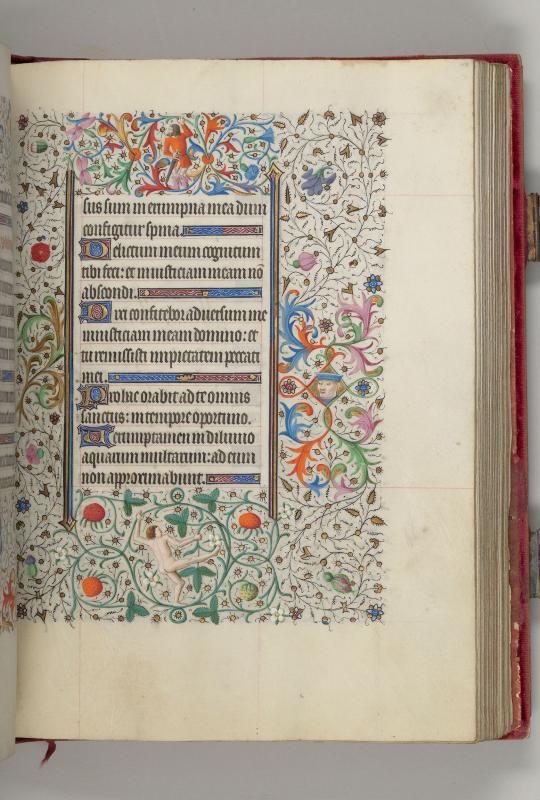 sus sum in erumpna mea dum
configitur spina.
Delictum meum cognitum
tibi feci: et iniusticiam meam nō
abscondi.
Dixi confitebor adversum me
iniusticiam meam domino: et
tu remisisti impietatem peccati
mei.
Pro hac orabit ad te omnis
sanctus: in tempore oportuno.
Verumptamen in diluvio
aquarum multarum: ad eum
non approximabunt.